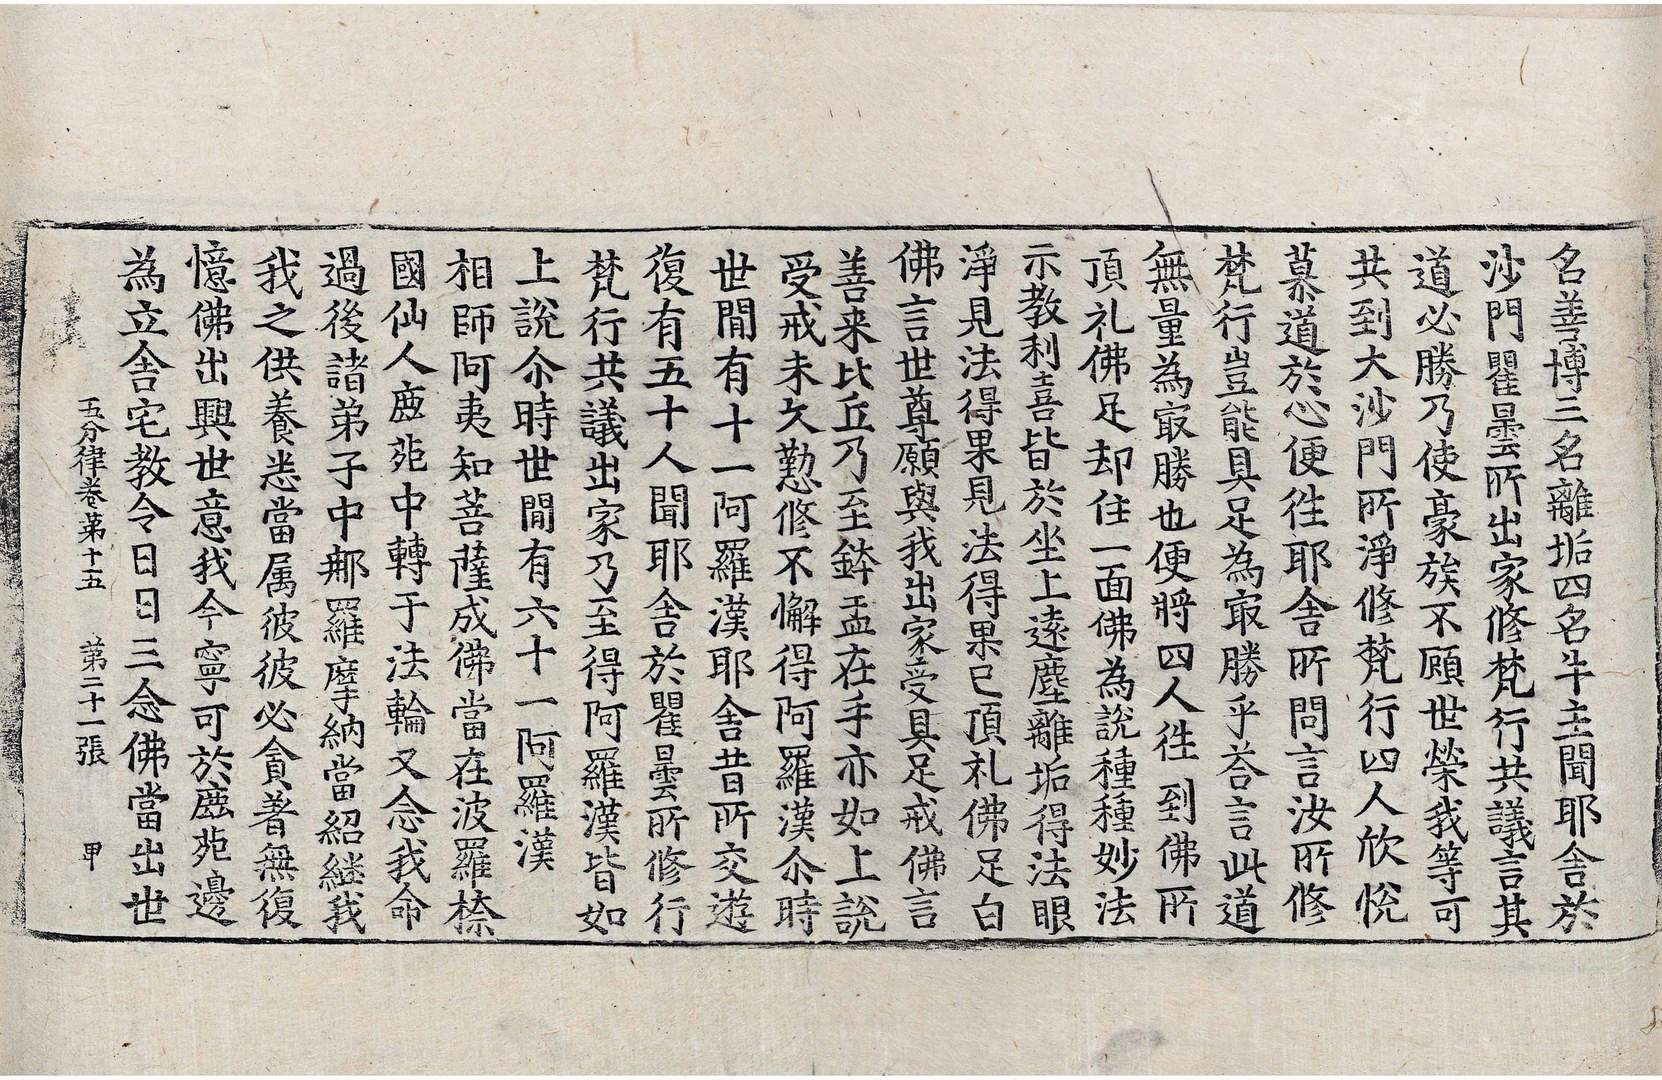 名善博三名離垢四名牛主聞耶舍於
沙門瞿曇所出家修梵行共議言其
道必勝乃使豪族不顧世榮我等可
共到大沙門所淨修梵行四人欣悅
慕道於心便徃耶舍所問言汝所修
梵行豈能具足為㝡勝乎荅言此道
無量為㝡勝也便將四人徃到佛所
頂礼佛足却住一面佛為說種種妙法
示教利喜皆於坐上遠塵離垢得法眼
淨見法得果見法得果已頂礼佛足白
佛言世尊願與我出家受具足戒佛言
善来比丘乃至鉢盂在手亦如上說
受戒未久懃修不懈得阿羅漢尒時
世閒有十一阿羅漢耶舍昔所交遊
復有五十人聞耶舍於瞿曇所修行
梵行共議出家乃至得阿羅漢皆如
上說尒時世閒有六十一阿羅漢
相師阿夷知菩薩成佛當在波羅㮈
國仙人鹿苑中轉于法輪又念我命
過後諸弟子中𨚗羅摩納當紹継我
我之供養悉當属彼彼必貪著無復
憶佛出興世意我今寧可於鹿苑邊
為立舍宅教令日日三念佛當出世
五分律卷第十五　第二十一張　甲